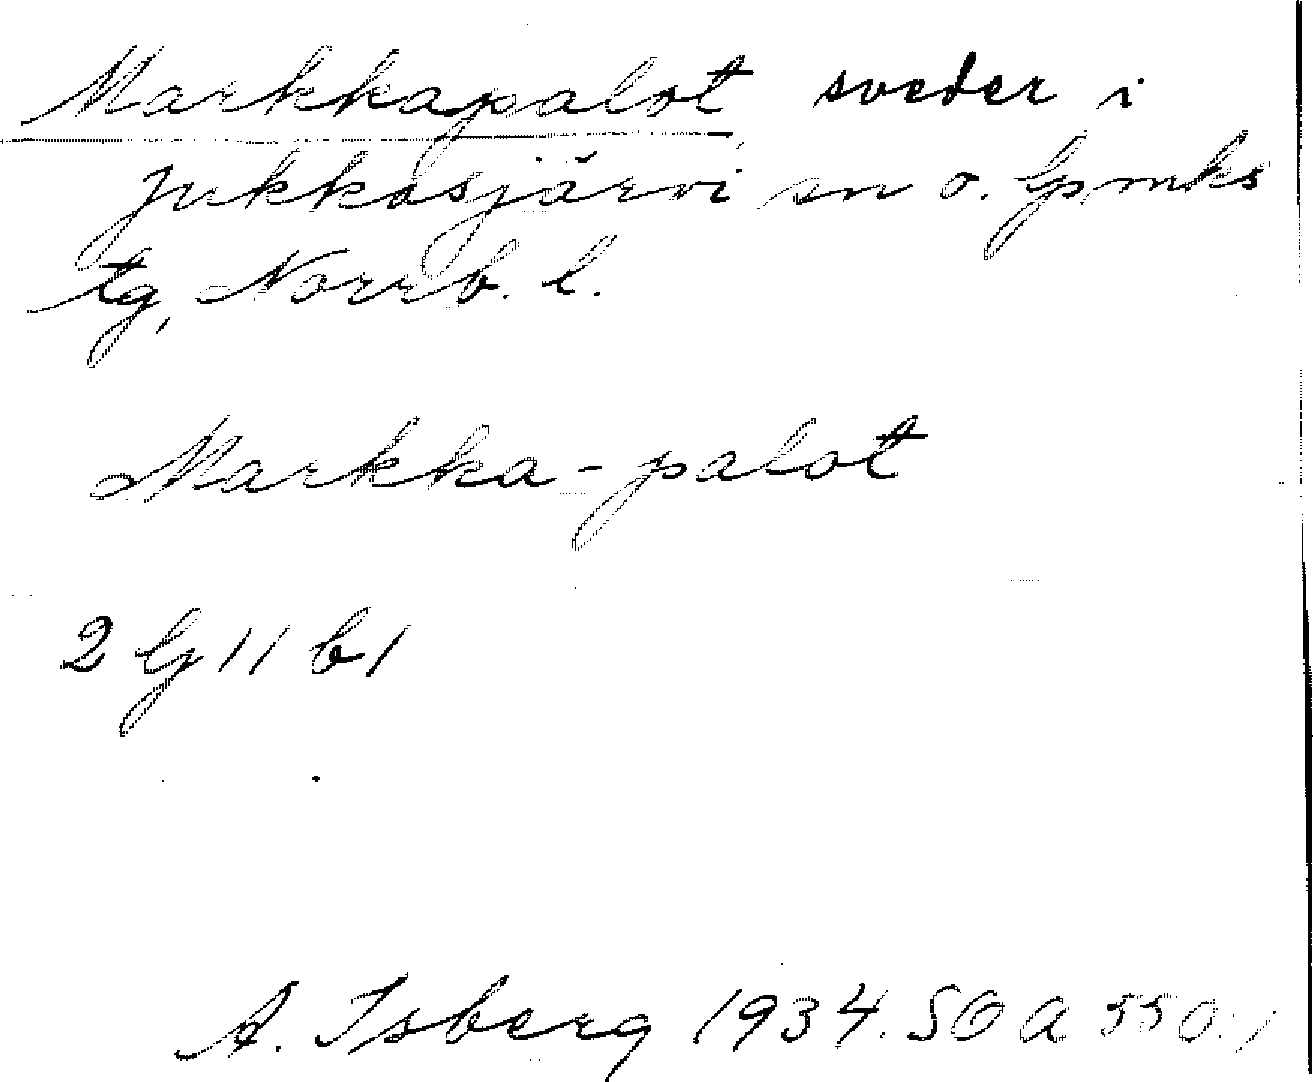 Markkapalot, sveder i
Jukkasjärvi sn o. lpmks
tg, Norrb. l.
Markka-palot
2 G 11 b 1
A. Isberg 1934. SOA 550.